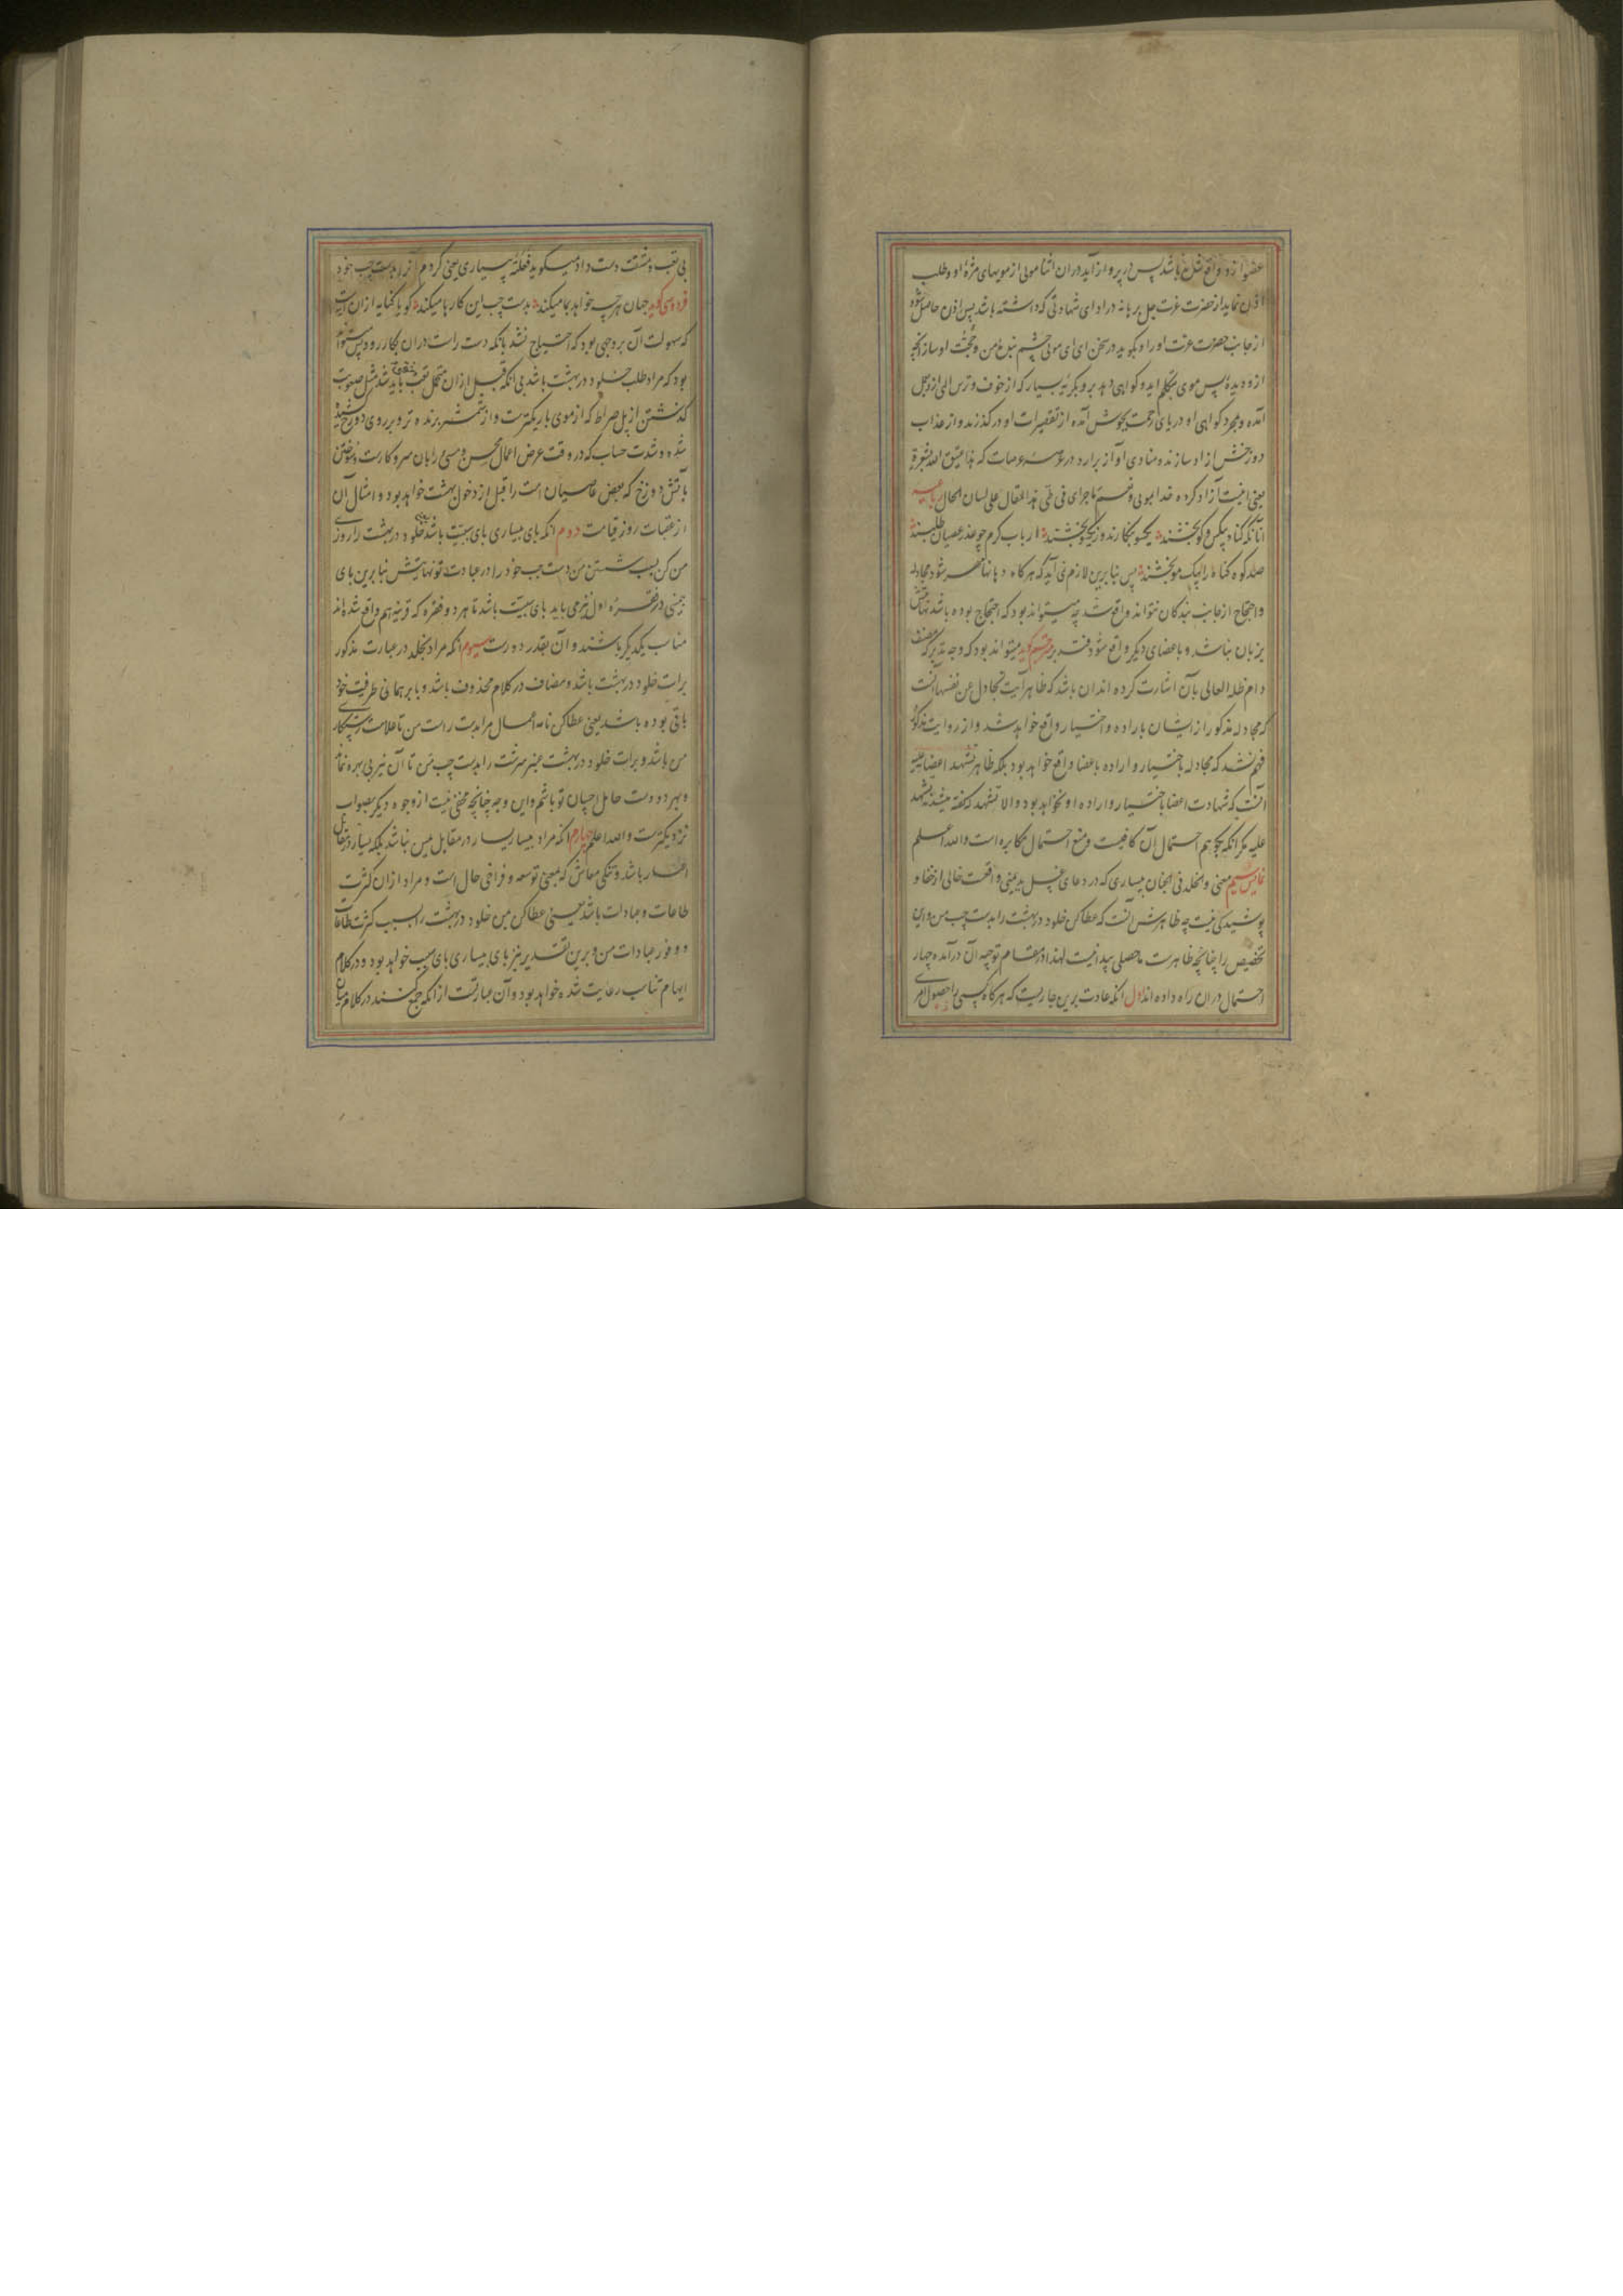 عضو از و واقع شد باشد پس در پرواز آید در ان اثنا مویی از مویهای مژهٔ او و طلب
اذن نماید از حضرت عزت جل برهانه در ادای شهادتی که داشته باشد پس اذن حاصل شود
از جانب حضرت عزت او را و بگوید در سخن ای ای موی چشم بندهٔ من و حجت او ساز آنچه
ازو دیدهٔ پس موی بتکلم اید و کواهی دهد برو بکریهٔ بسیار که از خوف و ترس الهی ازو بعمل
آمده و بمجرد کواهی او دریای رحمت بجوش آمده از تقصیرات او در کذرند و از عذاب
دوزخش ازاد سازند و منادی آواز برارد در عرصهٔ عرصات که هذا عتیق الله بشعرة
یعنی اینست آزاد کرده خدا بمویی و نعم ما جرای فی طی هذا المقال علی لسان الحال رباعیه
آنانکه کناه بیکس و کو بخشند یکجو بنکارند و ز یکجو بخشند ارباب کرم چو عذر عصیان طلبند
صد کوه کناه را بیک مو بخشند پس بنا برین لازم نمی آید که هر کاه دهانها مهر شود مجادله
و احتجاج از جانب بندکان نتواند واقع شد چه میتواند بود که احتجاج بوده باشد نهایتش
بزبان نباشد و باعضای دیکر واقع شود فتدبر مترجم کوید میتواند بود که وجه تدبر که مصنف
دام ظله العالی بآن اشارت کرده اند ان باشد که ظاهر آیت تجادل عن نفسها آنست
که مجادله مذکور از ایشان باراده و اختیار واقع خواهد شد و از روایت مذکور
فهم نشد که مجادله باختیار و اراده باعضا واقع خواهد بود بلکه ظاهر تشهد اعضا علیه
آنست که شهادت اعضا باختیار و اراده او نخواهد بود و الا تشهد که کفته میشد نه تشهد
علیه مکر انکه بکویم احتمال آن کافیست و منع احتمال مکابره است والله اعلم
معنی والخلد فی الجنان بیساری که در دعای غسل ید یمنی واقعست خالی از خفا و
پوشیدکی نیست چه ظاهرش آنست که عطا کن خلود در بهشت را بدست چپ من و این
تخصیص را چنانچه ظاهرست محصلی پیدا نیست لهذا در مقام توجیه آن در آمده چهار
احتمال در ان راه داده اند اول انکه عادت برین جاریست که هر کاه کسی را حصول امری
بی تعب و مشقت دست داد میکوید فعلته بیساری یعنی کردم انرا بدست چپ خود
فردوسی کوید جهان هر چه خواهد بما میکند بدست چپ این کارها میکند کویا کنایه از ان است
که سهولت آن بروجهی بود که احتیاج نشد بانکه دست راست در ان بکار رود پس میتواند
بود که مراد طلب خلود در بهشت باشد بی انکه قبل از ان متحمل تعب و مشقت باید شد مثل صعوبت
کذشتن از پل صراط که از موی باریکترست و از شمشیر برنده تر و بر روی دوزخ کشیده
شده و شدت حساب که در وقت عرض اعمال محسن و مسی را بان سر و کارست و سوختن
باتش دوزخ که بعض عاصیان امت را قبل از دخول بهشت خواهد بود و امثال آن
از عقبات روز قیامت دوم انکه بای بیساری بای سببیت باشد یعنی خلود در بهشت را روزی
من کن بسبب شستن من دست چپ خود را در عبادت تو نهایتش بنا برین بای
یمینی در فقرهٔ اول نیز می باید بای سببیت باشد تا هر دو فقره که قرینه هم واقع شده اند
مناسب یکدیکر باشند و آن بقدر دورست سیوم انکه مراد بخلد در عبارت مذکور
برات خلود در بهشت باشد و مضاف در کلام محذوف باشد و با بر همانی ظرفیت خود
باقی بوده باشد یعنی عطا کن نامه اعمال مرا بدست راست من تا علامت رستکاری
من باشد و برات خلود در بهشت عنبر سرشت را بدست چپ من تا آن نیز بی بهره نماند
و بهر دو دست حامل احسان تو باشم و این وجه چنانچه مخفی نیست از وجوه دیکر بصواب
نزدیکترست والله اعلم چهارم انکه مراد بیسار یسار در مقابل یمین نباشد بلکه یسار در مقابل
اعسار باشد و تنکی معاش که بمعنی توسعه و فراخی حال است و مراد از ان کثرت
طاعات و عبادات باشد یعنی عطا کن بمن خلود در بهشت را بسبب کثرت طاعات
و وفور عبادات من و برین تقدیر نیز بای بیساری بای سبب خواهد بود و در کلام
ایهام تناسب رعایت شده خواهد بود و آن عبارتست از انکه جمع کنند در کلام میان